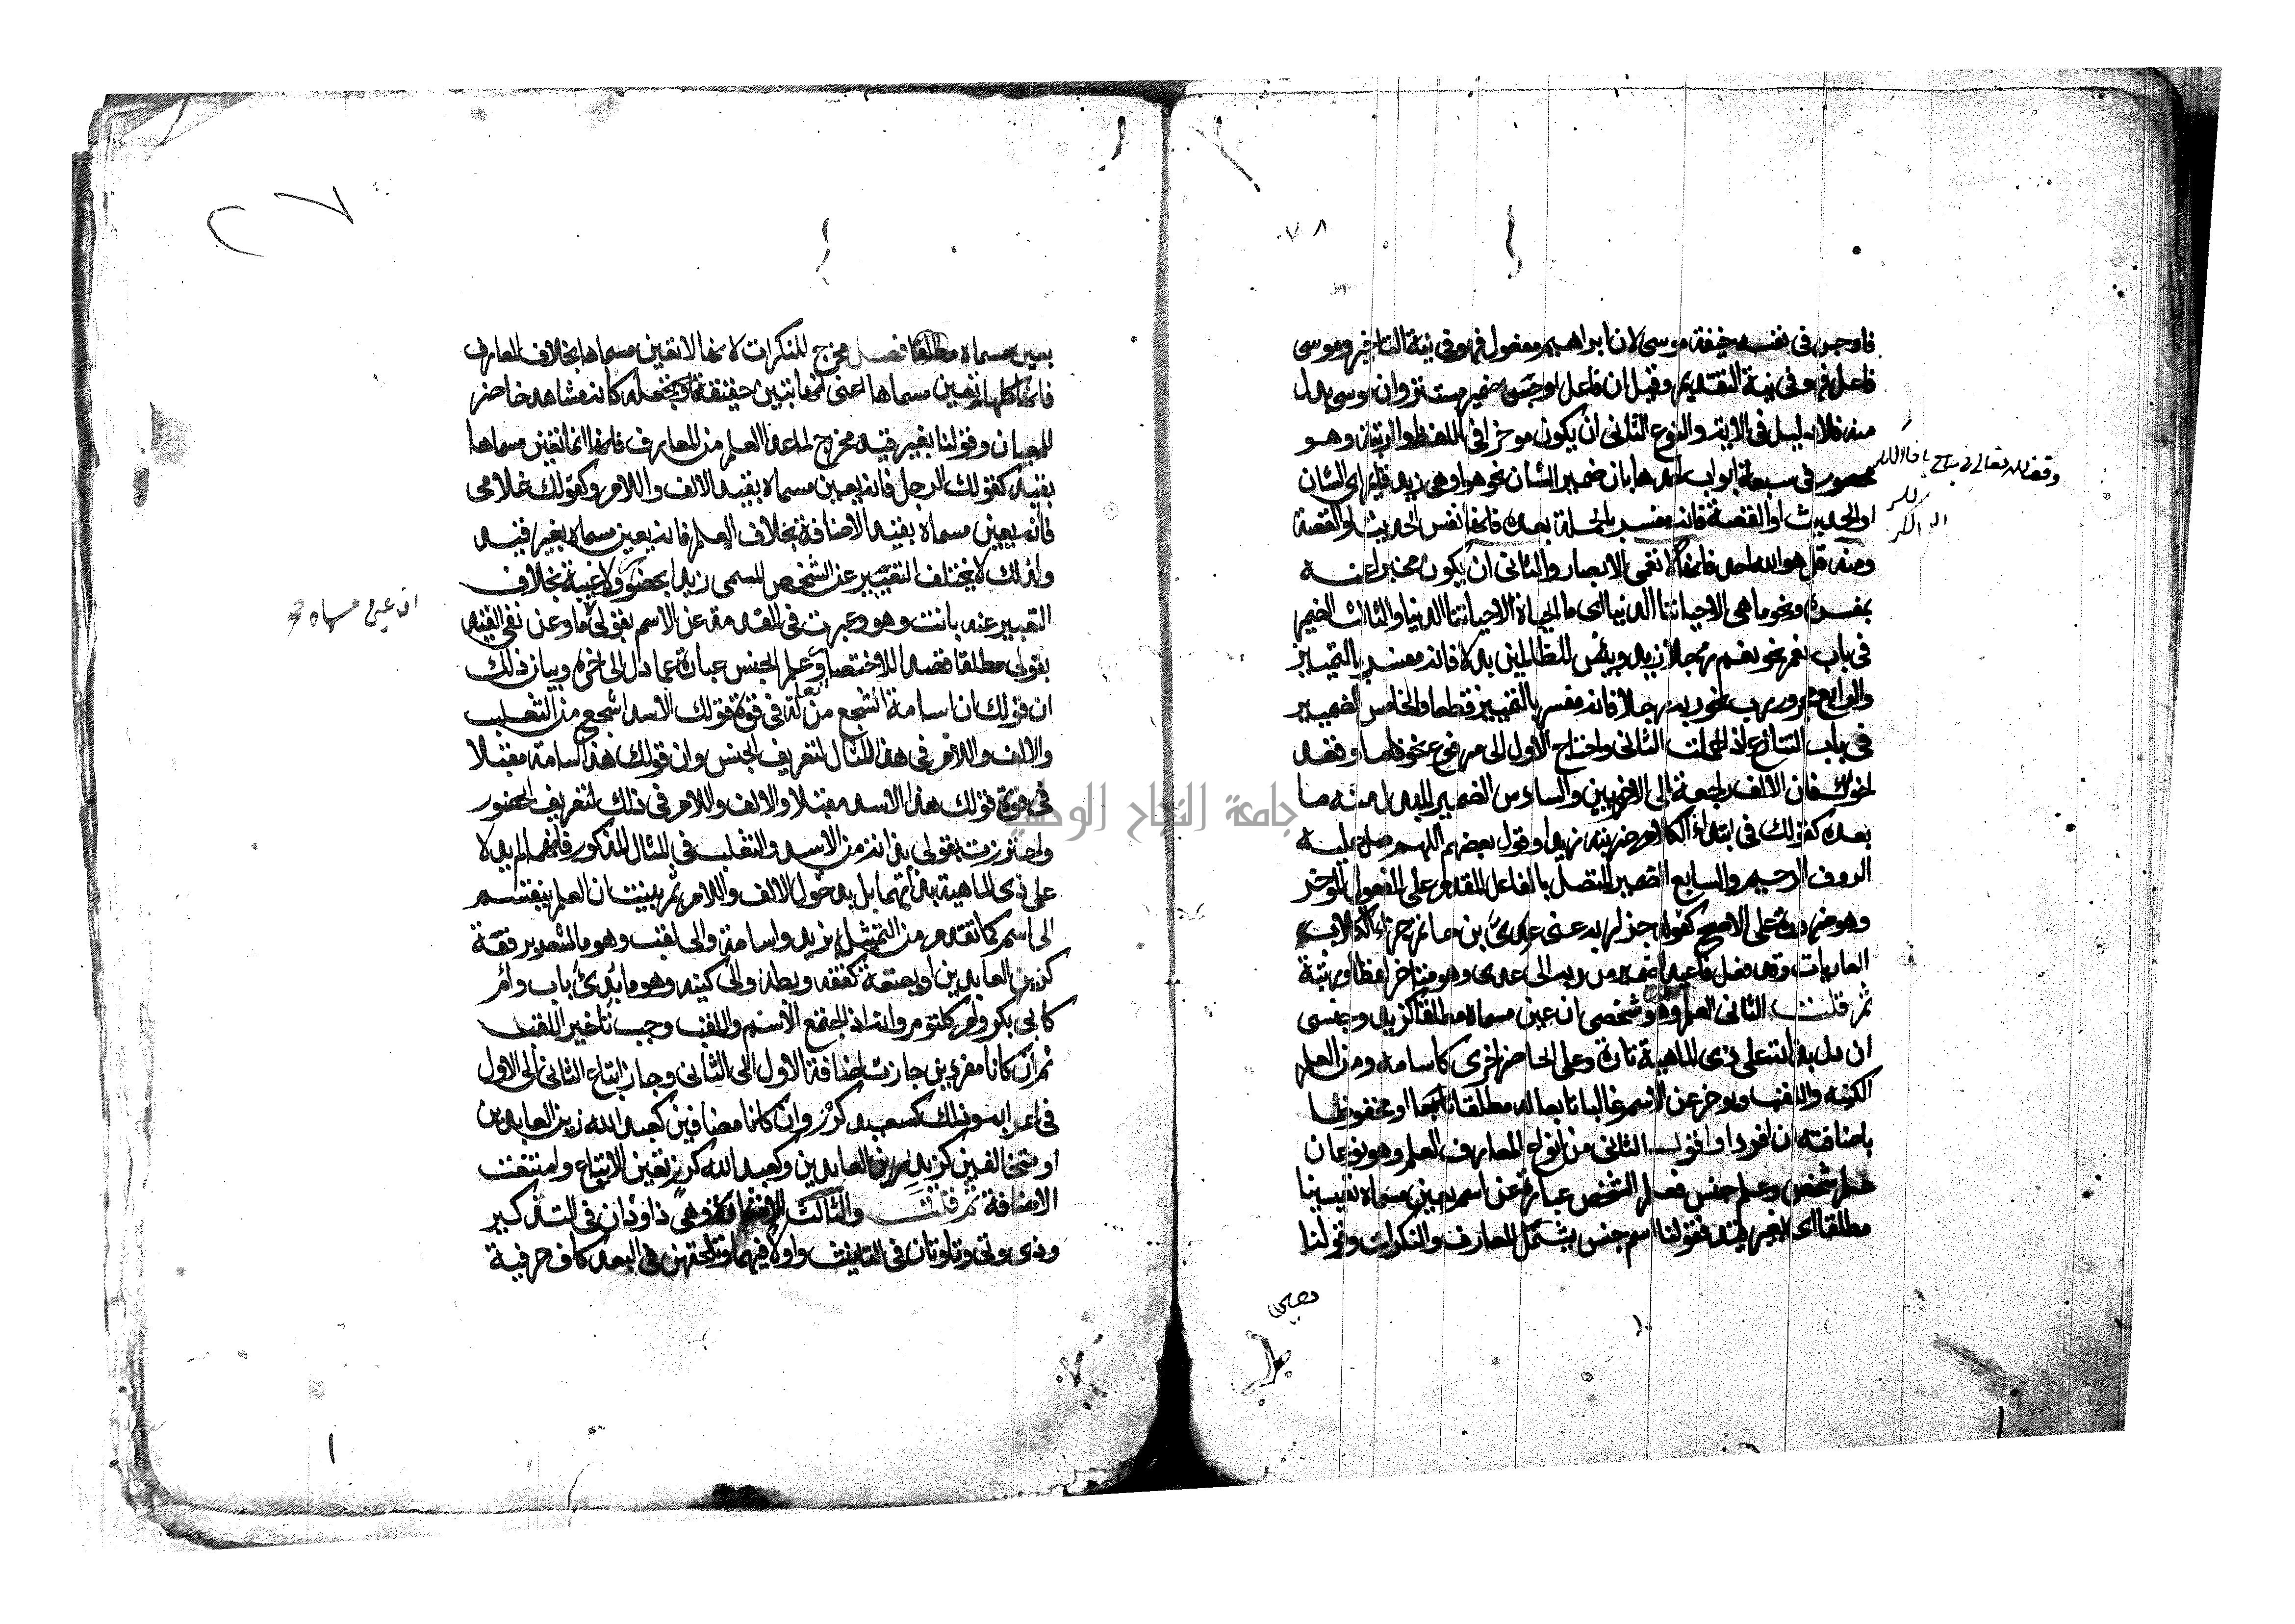 فاوجس فى نفسه خيفة موسى لان ابراهيم مفعول فهو فى نية التاخير وموسى
فاعل فهو فى نية التقديم وقيل ان فاعل اوجس ضمير مستتر وان موسى بدل
منه فلا دليل فى الاية والنوع الثانى ان يكون موخرا فى اللفظ والرتبة وهو
محصور فى سبعة ابواب احدها باب ضمير الشان نحو هو او هى زيد قايم اى الشان
او الحديث او القصة فانه مفسر بالجملة بعده فانها نفس الحديث او القصة
ومنه قل هو الله احد فانها لا تعمى الابصار والثانى ان يكون مخبرا عنه
بمفسره ونحو ما هى الا حياتنا الدنيا اى ما الحياة الا حياتنا الدنيا والثالث الضمير
فى باب نعم نحو نعم رجلا زيد وبئس للظالمين بدلا فانه مفسر بالتمييز
والرابع مجرور رب نحو ربه رجلا فانه مفسر بالتمييز قطعا والخامس الضمير
فى باب التنازع اذا اعملت الثانى واحتاج الاول الى مرفوع نحو قاما وقعد
اخواك فان الالف راجعة الى الاخوين والسادس الضمير المبدل منه ما
بعده كقولك فى ابتداء الكلام ضربته زيدا وقول بعضهم اللهم صل عليه
الروف الرحيم والسابع الضمير المتصل بالفاعل المقدم على المفعول الموخر
وهو ضرورة على الاصح كقوله جزا ربه عنى عدى بن حاتم جزاء الكلاب
العاويات وقد فصل فاعيد الضمير من ربه الى عدى وهو متاخر لفظا ورتبة
ثم قلت الثانى العلم وهو شخصى ان عين مسماه مطلقا كزيد وجنسى
ان دل بذاته على ذى الماهية تارة وعلى الحاضر اخرى كاسامه ومن العلم
الكنيه واللقب ويوخر عن الاسم غالبا تابعا له مطلقا او مخفوضا
باضافته ان افردا واقول الثانى من انواع المعارف العلم وهو نوعان
علم شخص وعلم جنس فعلم الشخص عبارة عن اسم يعين مسماه تعيينا
مطلقا اى بغير قيد فقولنا اسم جنس يشتمل المعارف والنكرات وقولنا
يعين
يعين مسماه مطلقا فصل مخرج للنكرات لانها لا تعين مسماها بخلاف المعارف
فانها كلها تعين مسماها اعنى انها تبين حقيقته وتجعله كانه مشاهد حاضر
للعيان وقولنا بغير قيد مخرج لما عدا العلم من المعارف فانها انما تعين مسماها
بقيد كقولك الرجل فانه يعين مسماه بقيد الالف واللام وكقولك غلامى
فانه يعين مسماه بقيد الاضافة بخلاف العلم فانه يعين مسماه بغير قيد
ولذلك لا يختلف التعبير عن الشخص المسمى زيدا بحضور ولا غيبة بخلاف
التعبير عنه بانت وهو وعبرت فى المقدمة عن الاسم بقولى ما وعن نفى القيد
بقولى مطلقا قصد للاختصار وعلم الجنس عبارة عما دل الى اخره وبيان ذلك
ان قولك ان اسامة اشجع من ثعالة فى قوة قولك الاسد اشجع من الثعلب
والالف واللام فى هذا المثال لتعريف الجنس وان قولك هذا اسامة مقبلا
فى قوة قولك هذا الاسد مقبلا والالف واللام فى ذلك لتعريف الحضور
واحترزت بقولى بذاته من الاسد والثعلب فى المثال المذكور فانهما لم يدلا
على ذى الماهية بذاتهما بل بدخول الالف واللام ثم بينت ان العلم ينقسم
الى اسم كما تقدم من التمثيل بزيد واسامة والى لقب وهو ما اشعر برفعة
كزين العابدين او بضعة كقفه وبطة والى كنيه وهو ما بدئ باب او ام
كابى بكر وام كلثوم وانه اذا اجتمع الاسم واللقب وجب تاخير اللقب
ثم ان كانا مفردين جازت اضافة الاول الى الثانى وجاز اتباع الثانى الى الاول
فى اعرابه وذلك كسعيد كرز وان كانا مضافين كعبد الله زين العابدين
او متخالفين كزيد زين العابدين وكعبد الله كرز تعين الاتباع وامتنعت
الاضافة ثم قلت والثالث الاشارة وهى ذا وذان فى التذكير
وذى وتى وتا وتان فى التانيث واولاء فيهما وتلحقهن فى البعد كاف حرفية
جامعة النجاح الوطنية
٢٧